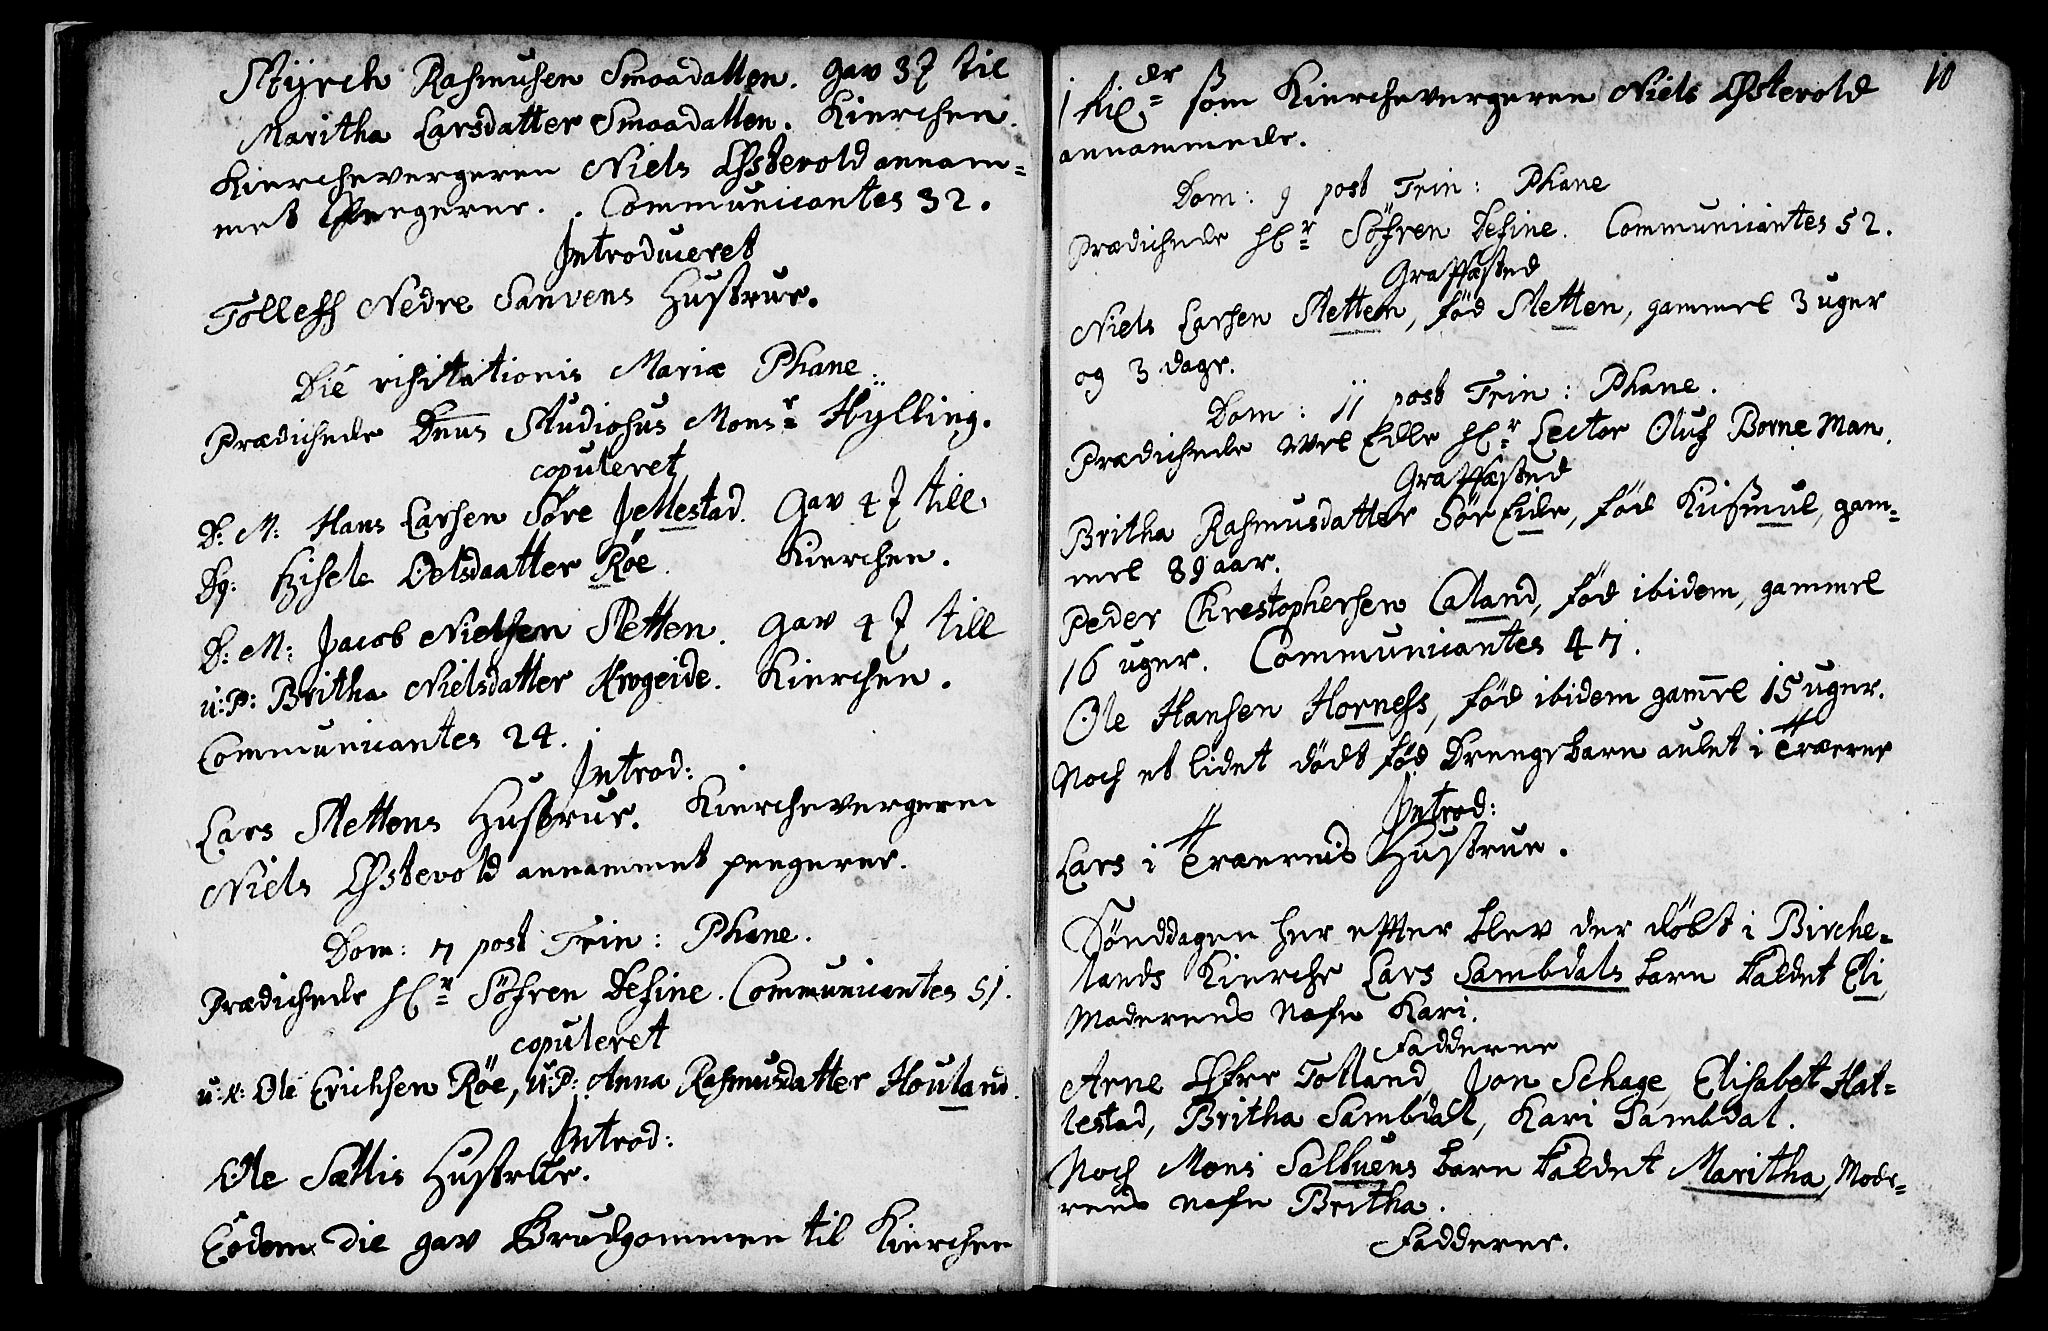 Styrch Rasmusen Smaadallen. gav 3 ꝭ til
Maritha Larsdatter Smaadallen. Kierchen.
Kierchevergeren Niels Østevold annam=
met Pengerne. . Communicantes 32.
Introduceret
Tollefs Nedre Sanvens Hustrue.
Die visitationis Mariæ Phane.
Prædichede Dnus Studiosus Monsr Hylling.
copuleret
D: M: Hans Larsen Søre Jellestad. Gav 4 ꝭ till
Dg: Gisele Oelsdaatter Røe. Kierchen.
D: M: Jacob Nielsen Stetten. Gav 4 ꝭ till
u: P: Britha Nielsdatter Krogeide. Kierchen.
Communicantes 24.
Introd:
Lars Stettens Hustrue. Kierchevergeren
Niels Østevold annammet pengerne.
Dom: 7 post Trin: Phane.
Prædichede Hr Søfren Desine. Communicantes 51.
copuleret
u: K: Ole Erichsen Røe, u: P: Anna Rasmusdatter Houland.
Introd:
Ole Sættis Hustrue.
Eodem Die gav Brudgommen til Kierchen
10
1 Rixdr som Kierchevergeren Niels Østevold
annammede.
Dom: 9 post Trin: Phane
Prædichede Hr Søfren Desine. Communicantes 52.
Graffæsted
Niels Larsen Stetten, fød Stetten, gammel 3 uger
og 3 dage.
Dom: 11 post Trin: Phane.
Prædichede Vel Edle Hr Lector Oluf Borneman.
Graffæsted
Britha Rasmusdatter Sør Eide, fød Kismul, gam=
mel 89 aar.
Peder Chrestophersen Caland, fød ibidem, gammel
16 uger. Communicantes 47.
Ole Hansen Horness, fød ibidem gamel 15 uger.
Noch et lidet dødt fød Drengebarn aulet i Træerne
Introd:
Lars i Træernis Hustrue.
Sønddagen her effter blev der døbt i Birche=
lands Kierche Lars Sambdals barn kaldet Eli,
Moderens Nafn Kari.
Fadderne
Arne Øfre Tolland, Jon Schage, Elisabet Hal=
lestad, Britha Sambdal, Kari Sambdal.
Noch Mons Salbuens barn kaldet Maritha, Mode=
rens nafn Britha.
Fadderne.